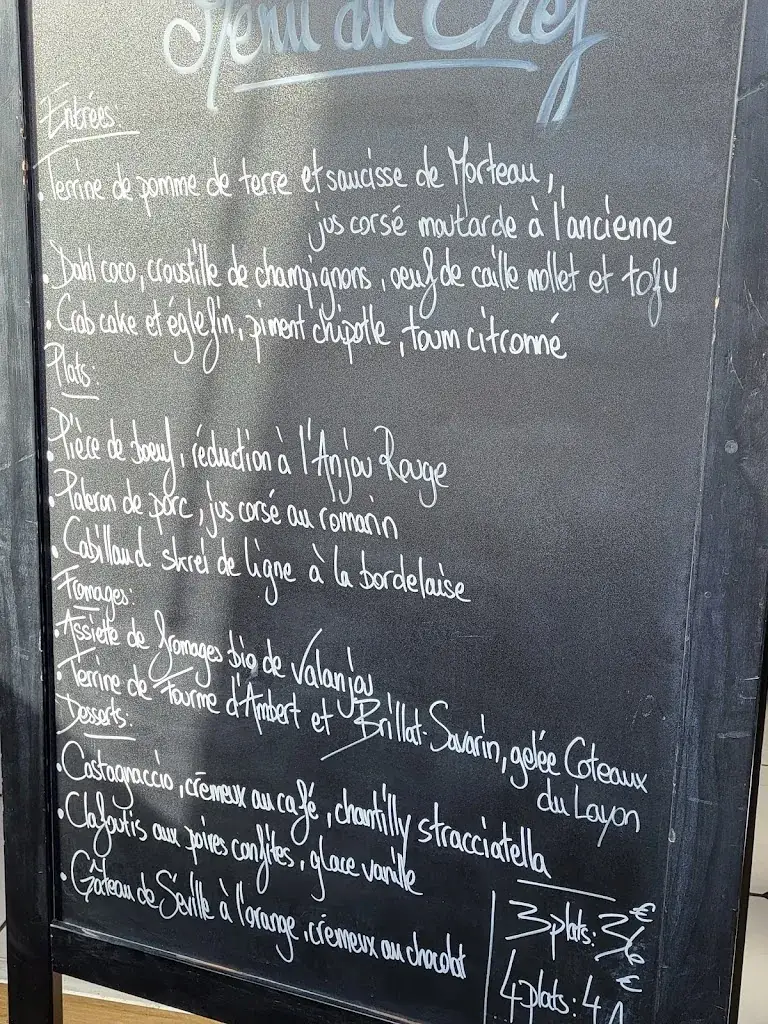 Menu du Chef
Entrées:
. Terrine de pomme de terre et saucisse de Morteau,
jus corsé moutarde à l'ancienne
. Dahl coco, croustille de champignons, oeuf de caille mollet et tofu
. Crab cake et églefin, piment chipotle, toum citronné
Plats:
. Pièce de boeuf, réduction à l'Anjou Rouge
. Paleron de porc, jus corsé au romarin
. Cabillaud skrei de ligne à la bordelaise
Fromages:
. Assiette de fromages bio de Valanjou
. Terrine de Fourme d'Ambert et Brillat-Savarin, gelée Coteaux
du Layon
Desserts:
. Castagnaccio, crémeux au café, chantilly stracciatella
. Clafoutis aux poires confites, glace vanille
. Gâteau de Séville à l'orange, crémeux au chocolat
3 plats: 36€
4 plats: 4 €